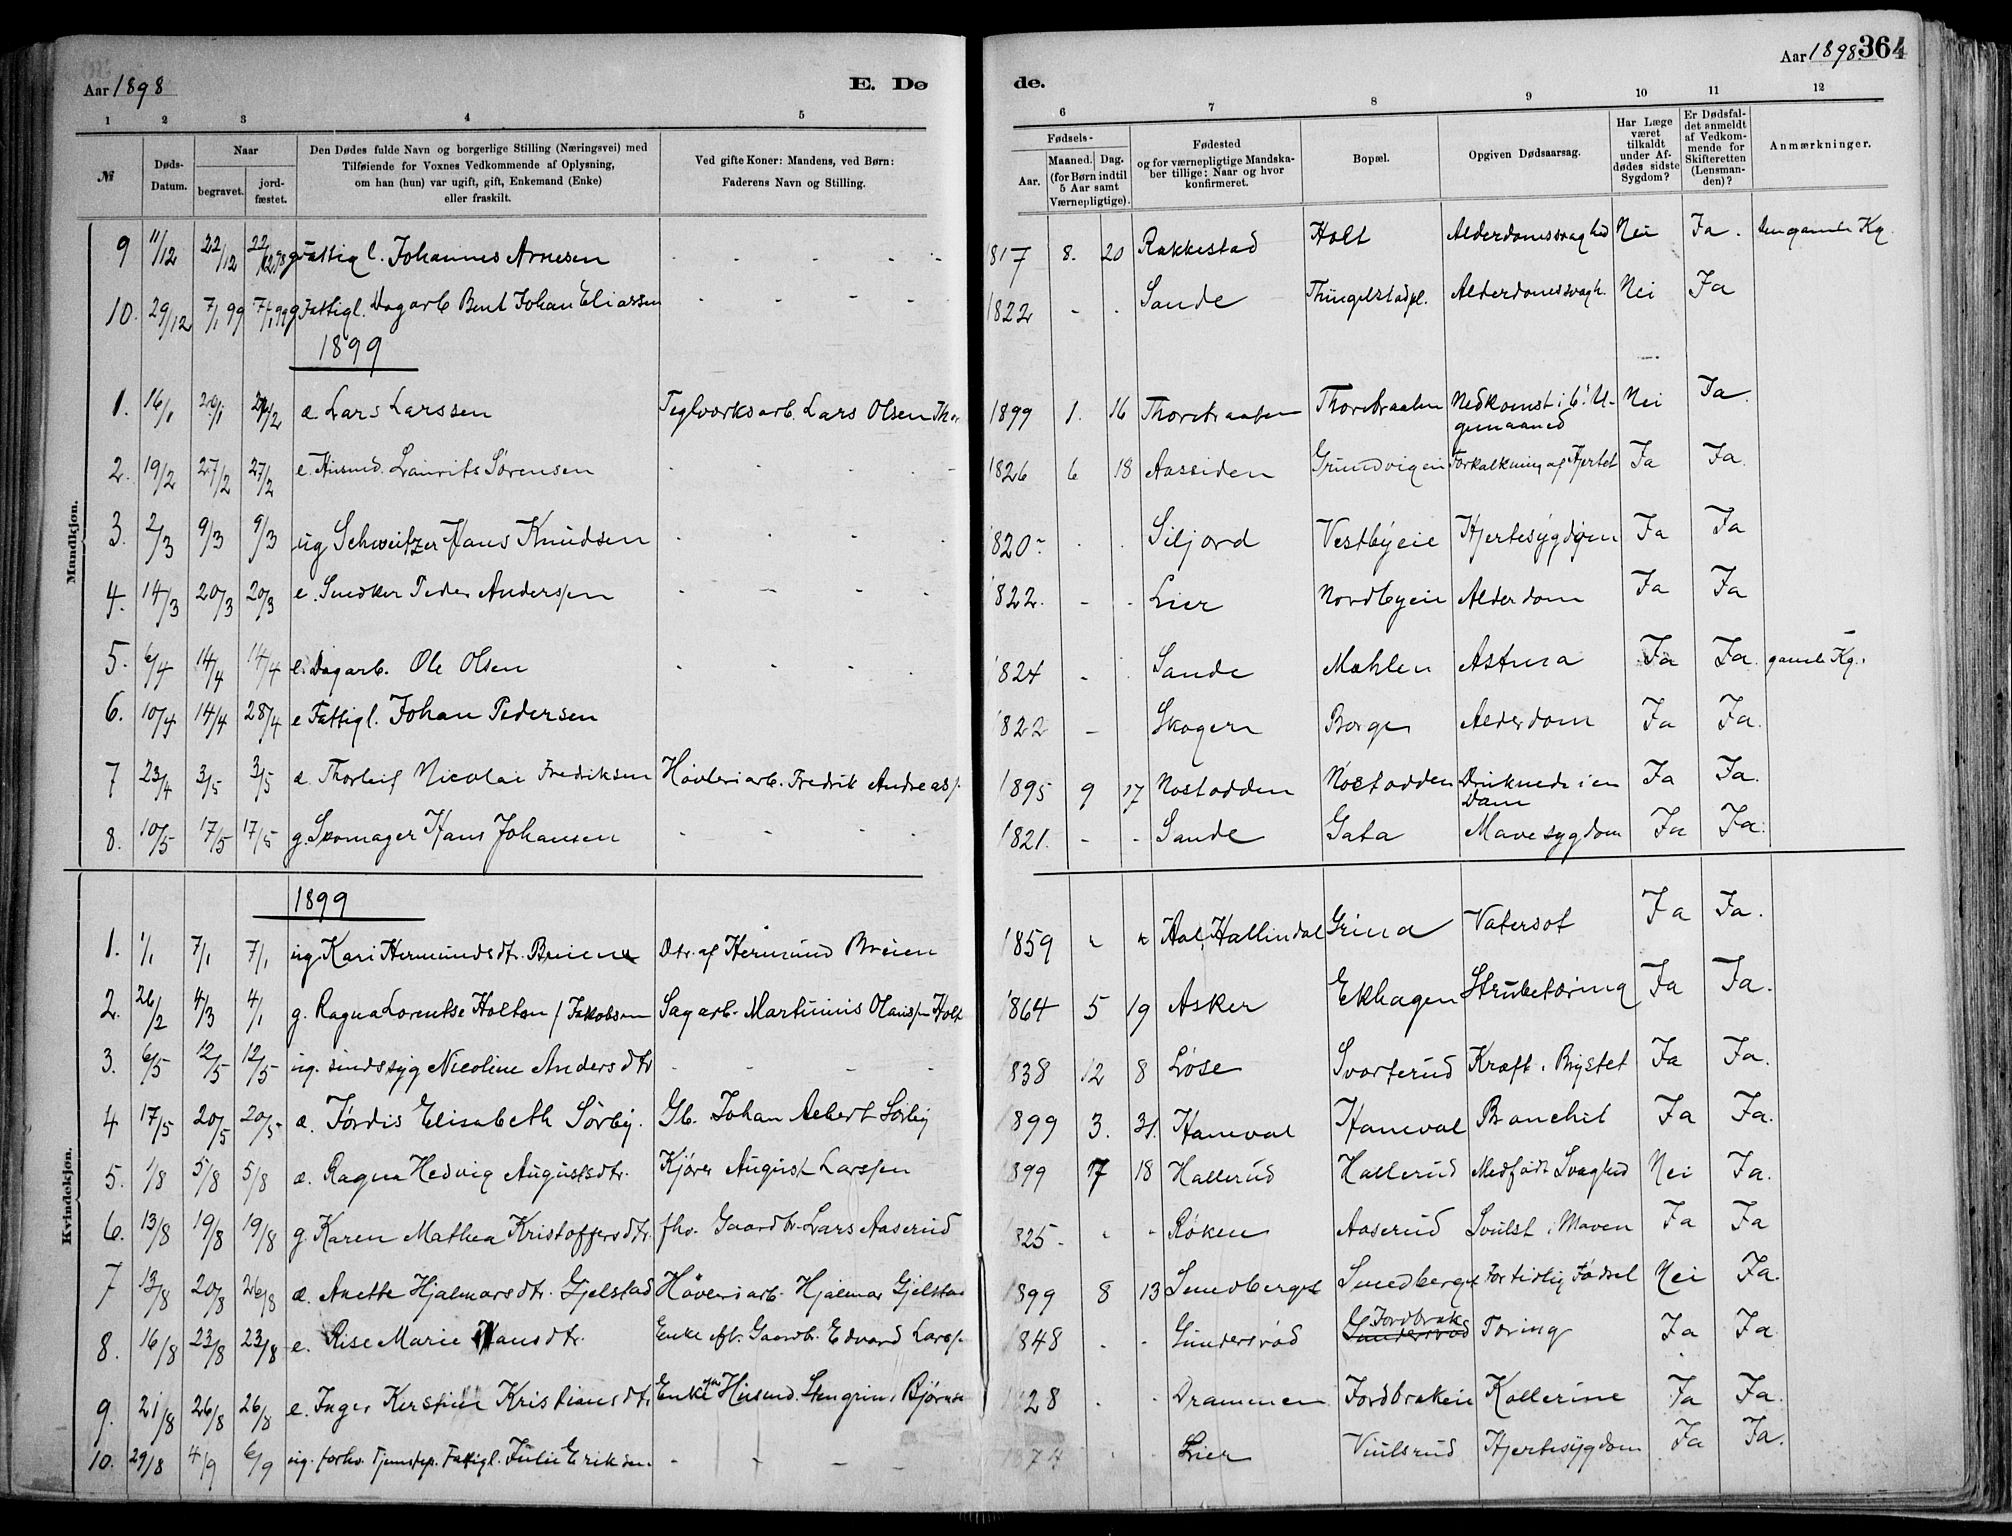 Aar 1898
E. Dø
de.
Aar 1898 364
1 2 3 4 5 6 7 8 9 10 11 12
№
Døds-Datum.
Naar
begravet.
jord-fæstet.
Den Dødes fulde Navn og borgerlige Stilling (Næringsvei) med
Tilføiende for Voxnes Vedkommende af Oplysning,
om han (hun) var ugift, gift, Enkemand (Enke)
eller fraskilt.
Ved gifte Koner: Mandens, ved Børn:
Faderens Navn og Stilling.
Fødsels-
Aar.
Maaned. Dag.
(for Børn indtil
5 Aar samt
Værnepligtige).
Fødested
og for værnepligtige Mandska-
ber tillige: Naar og hvor
konfirmeret.
Bopæl.
Opgiven Dødsaarsag.
Har Læge
været
tilkaldt
under Af-
dødes sidste
Sygdom?
Er Dødsfal-
det anmeldt
af Vedkom-
mende for
Skifteretten
(Lensman-
den)?
Anmærkninger.
Mandkjøn.
9 11/12 22/12 22/12 98 g Fattigl. Johannes Arnesen - 1817 8. 20 Rakkestad Holt Alderdomssvaghed Nei Ja. Den gamle Kg.
10. 29/12 7/1 99 7/1 99 g Fattigl. Dagarb. Bent Johan Eliassen - 1822 - - Sande Thingelstadpl. Alderdomssvagh. Nei Ja
1899
1. 16/1 20/1 æ Lars Larssen Teglværksarb. Lars Olsen 1899 1. 16 Thorebraaten Thorebraaten Nedkomst i 6' U-
gemaaned Nei Ja.
2. 19/2 27/2 27/2 e. Husmd. Laurits Sørensen - 1826 6 18 Aassiden Grundvigen Forkalkning af Hjertet Ja Ja.
3. 2/3 9/3 9/3 ug Schweitzer Hans Knudsen - 1820 - - Siljord Vestbyeie Hjertesygdom Ja Ja
4. 14/3 20/3 20/3 e. Snedker Peder Anderssen - 1822. - - Lier Nordbyeie Alderdom Ja Ja
5. 6/4 14/4 14/4 e. Dagarb. Ole Olsen - 1824 - - Sande Mæhlen Astma Ja Ja. gamle Kg.
6. 10/4 14/4 28/4 e Fattigl. Johan Pedersen 1822 - Skoger Borge Alderdom Ja Ja.
7 23/4 3/5 3/5 æ. Thorleif Nicolai Fredriksen Høvleriarb. Fredrik Andreass. 1895 9 17 Nøstodden Nøstodden Druknede i en
Dam Ja Ja.
8. 10/5 17/5 17/5 g. Skomager Hans Johansen - 1821. - - Sande Gata Mavesygdom Ja Ja.
Kvindekjøn.
1899
1. 1/1 7/1 7/1 ug Kari Hermundsdtr. Breien Dtr. af Hermund Breien 1859 Aal, Hallindal Grina Vatersot Ja Ja.
2. 26/2 4/3 4/1 g. Ragna Lorentse Holtan f Jakobsen Sagarb. Martinius Olaussen Holt 1864 5 19 Asker Ekhagen Strubetæring Ja Ja.
3. 6/5 12/5 12/5 ug. sindssyg Nicoline Andersdtr - 1838 12 8 Løse Svarterud Kræft i Brystet Ja Ja.
4 17/5 20/5 20/5 æ. Jørdis Elisabeth Sörby. Gb. Johan Albert Sörby 1899 3. 31. Haneval Haneval Bronchit Ja Ja.
5. 1/8 5/8 5/8 æ. Ragna Hedvig Augustsdtr. Kjører August Larssen 1899 7 18 Hallerud Hallerud Medfødt Svaghed Nei Ja.
6. 13/8 19/8 19/8 g. Karen Mathea Kristoffersdtr. fhv. Gaardbr. Lars Aaserud 1825 - - - Røken Aaserud Svulst i Maven Ja Ja
7 13/8 20/8 26/8 æ. Anette Hjalmarsdtr. Gjelstad Høvleriarb. Hjalmar Gjelstad 1899 8 13 Smedberget Smedberget For tidlig Fødsel Nei Ja.
8. 16/8 23/8 23/8 e. Rise Marie Hansdtr. Enke eft. Gaardb. Edvard Larss. 1848 - - Gundersrød Gundersrød Jordbræk Tæring Ja Ja.
9. 21/8 26/8 26/8 e. Inger Kerstine Kristiansdtr Enke Husmd. Stengrim Bjørnse 1828 - - Drammen Jordbrækeie Kollerine Ja Ja.
10. 29/8 4/9 6/9 ug. forhv. Tjenstep. Fattigl. Julie Eriksen. - 1874 Lier Viulsrud Hjertesygdom Ja Ja.